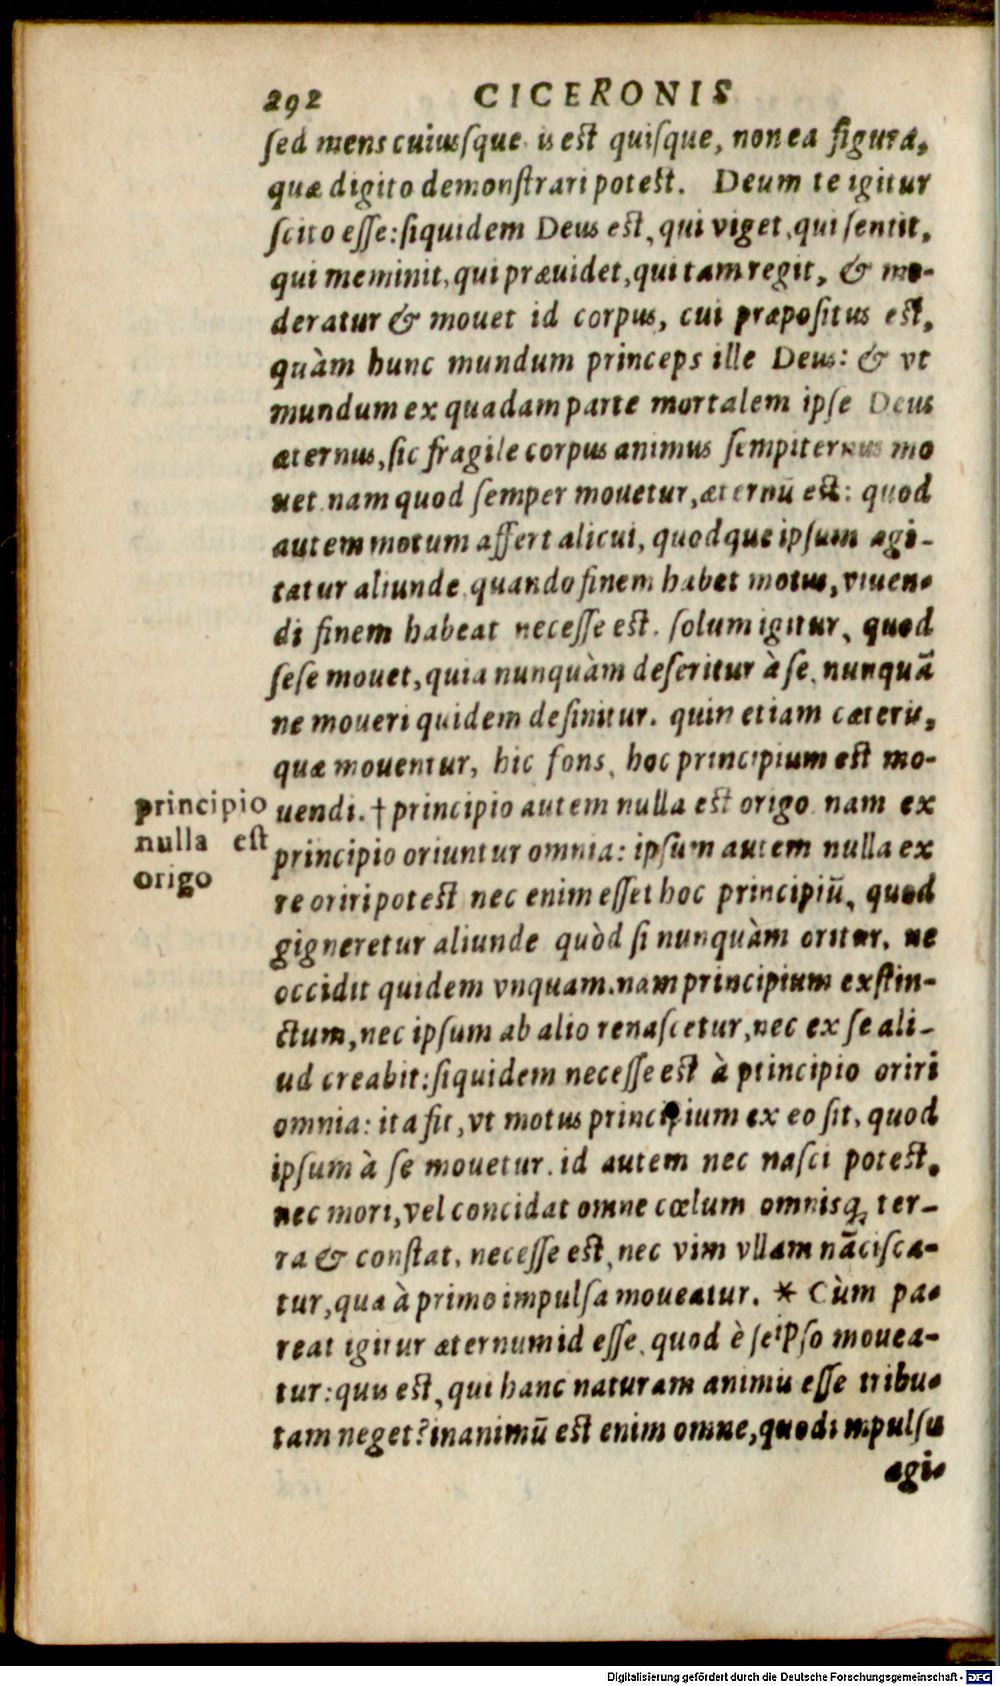 292 CICERONIS
ſed mens cuiuſque is eſt quiſque, non ea figura,
quæ digito demonſtrari poteſt. Deum te igitur
ſcito eſſe: ſiquidem Deus eſt, qui viget, qui ſentit,
qui meminit, qui præuidet, qui tam regit, & mo-
deratur & mouet id corpus, cui præpoſitus eſt,
quàm hunc mundum princeps ille Deus: & vt
mundum ex quadam parte mortalem ipſe Deus
æternus, ſic fragile corpus animus ſempiternus mo
uet. nam quod ſemper mouetur, æternũ eſt: quod
autem motum affert alicui, quodque ipſum agi-
tatur aliunde, quando finem habet motus, viuen-
di finem habeat neceſſe eſt. ſolum igitur, quod
ſeſe mouet, quia nunquàm deſeritur à ſe, nunquã
ne moueri quidem definitur. quin etiam cæteris,
quæ mouentur, hic fons, hoc principium eſt mo-
uendi. † principio autem nulla eſt origo. nam ex
principio oriuntur omnia: ipſum autem nulla ex
re oriri poteſt nec enim eſſet hoc principiũ, quod
gigneretur aliunde quòd ſi nunquàm oritur, ne
occidit quidem vnquam. nam principium exſtin-
ctum, nec ipſum ab alio renaſcetur, nec ex ſe ali-
ud creabit: ſiquidem neceſſe eſt à principio oriri
omnia: ita fit, vt motus principium ex eo ſit, quod
ipſum à ſe mouetur. id autem nec naſci poteſt,
nec mori, vel concidat omne cœlum omnisq; ter-
ra & conſtat, neceſſe eſt, nec vim vllam nãciſca-
tur, qua à primo impulſa moueatur. * Cùm pa-
reat igitur æternum id eſſe, quod è ſeipſo mouea-
tur: quis eſt, qui hanc naturam animis eſſe tribu-
tam neget? inanimũ eſt enim omne, quod impulſu
agi-
principio
nulla eſt
origo
Digitalisierung gefördert durch die Deutsche Forschungsgemeinschaft - DFG